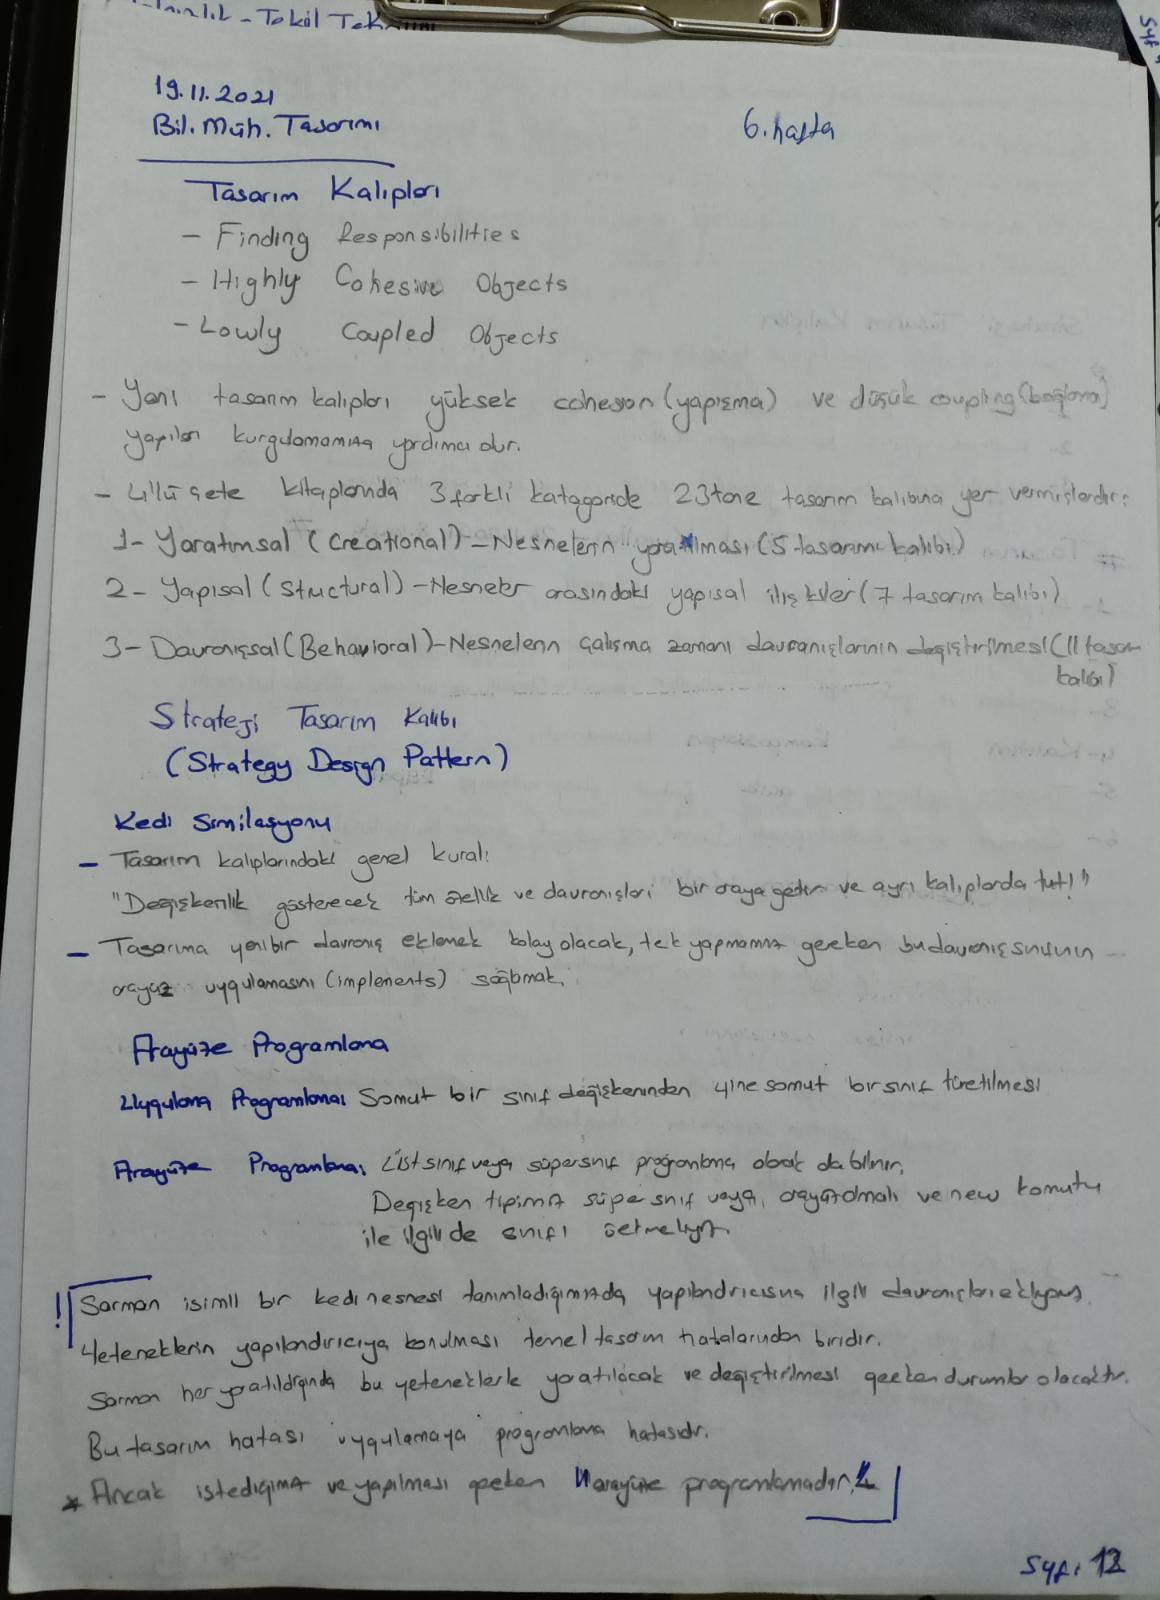 - Tekil
19.11.2021
Bil. Müh. Tasarımı
6. hafta
Tasarım Kalıpları
- Finding Responsibilities
- Highly Cohesive Objects
- Lowly Coupled Objects
- Yani tasarım kalıpları yüksek cohesion (yapışma) ve düşük coupling (bağlama)
yapıları kurgulamamıza yardımcı olur.
- Ünlü çete kitaplarında 3 farklı katagoride 23 tane tasarım kalıbına yer vermişlerdir:
1- Yaratımsal (Creational) - Nesnelerin yaratılması (5 tasarım kalıbı)
2- Yapısal (Structural) - Nesneler arasındaki yapısal ilişkiler (7 tasarım kalıbı)
3- Davranışsal (Behavioral) - Nesnelerin çalışma zamanı davranışlarının değiştirilmesi (11 tasarım
kalıbı)
Strateji Tasarım Kalıbı
(Strategy Design Pattern)
Kedi Similasyonu
- Tasarım kalıplarındaki genel kural:
"Değişkenlik gösterecek tüm özellik ve davranışları bir araya getir ve ayrı kalıplarda tut!"
- Tasarıma yeni bir davranış eklemek kolay olacak, tek yapmamız gereken bu davranış sınıfının
arayüz uygulamasını (implements) sağlamak.
Arayüze Programlama
Uygulama Programlama: Somut bir sınıf değişkeninden yine somut bir sınıf türetilmesi
Arayüze Programlama: Üst sınıf veya süpersınıf programlama olarak da bilinir.
Değişken tipimiz süper sınıf veya arayüz olmalı ve new komutu
ile ilgili de sınıfı üretmeliyiz.
! Sarman isimli bir kedi nesnesi tanımladığımızda yapılandırıcısına ilgili davranışları ekliyoruz.
Yeteneklerin yapılandırıcıya konulması temel tasarım hatalarından biridir.
Sarman her yaratıldığında bu yeteneklerle yaratılacak ve değiştirilmesi gereken durumlar olacaktır.
Bu tasarım hatası uygulamaya programlama hatasıdır.
* Ancak istediğimiz ve yapılması gereken "arayüze programlamadır."
Syf: 12